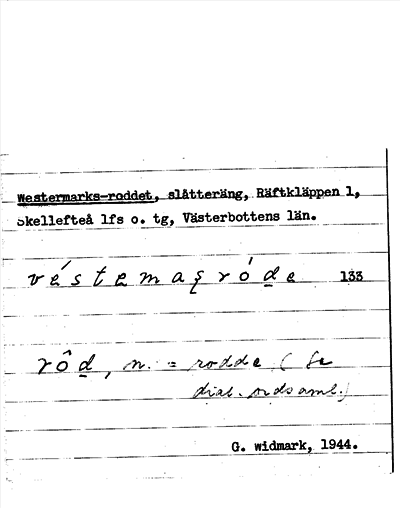 Westermarks-roddet, slåtteräng, Räftkläppen 1,
Skellefteå lfs o. tg, Västerbottens län.
véstemaʂróde 133
rôd, n. = rodde (Se
dial. ordsaml.)
G. Widmark, 1944.